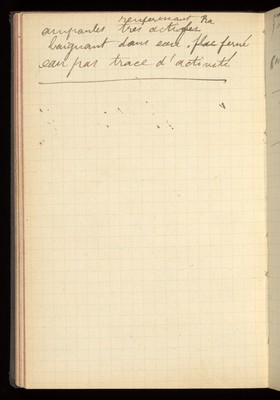 renfermant Ra
ampoules très actives
baignant dans eau, flac fermé
eau pas trace d'activité